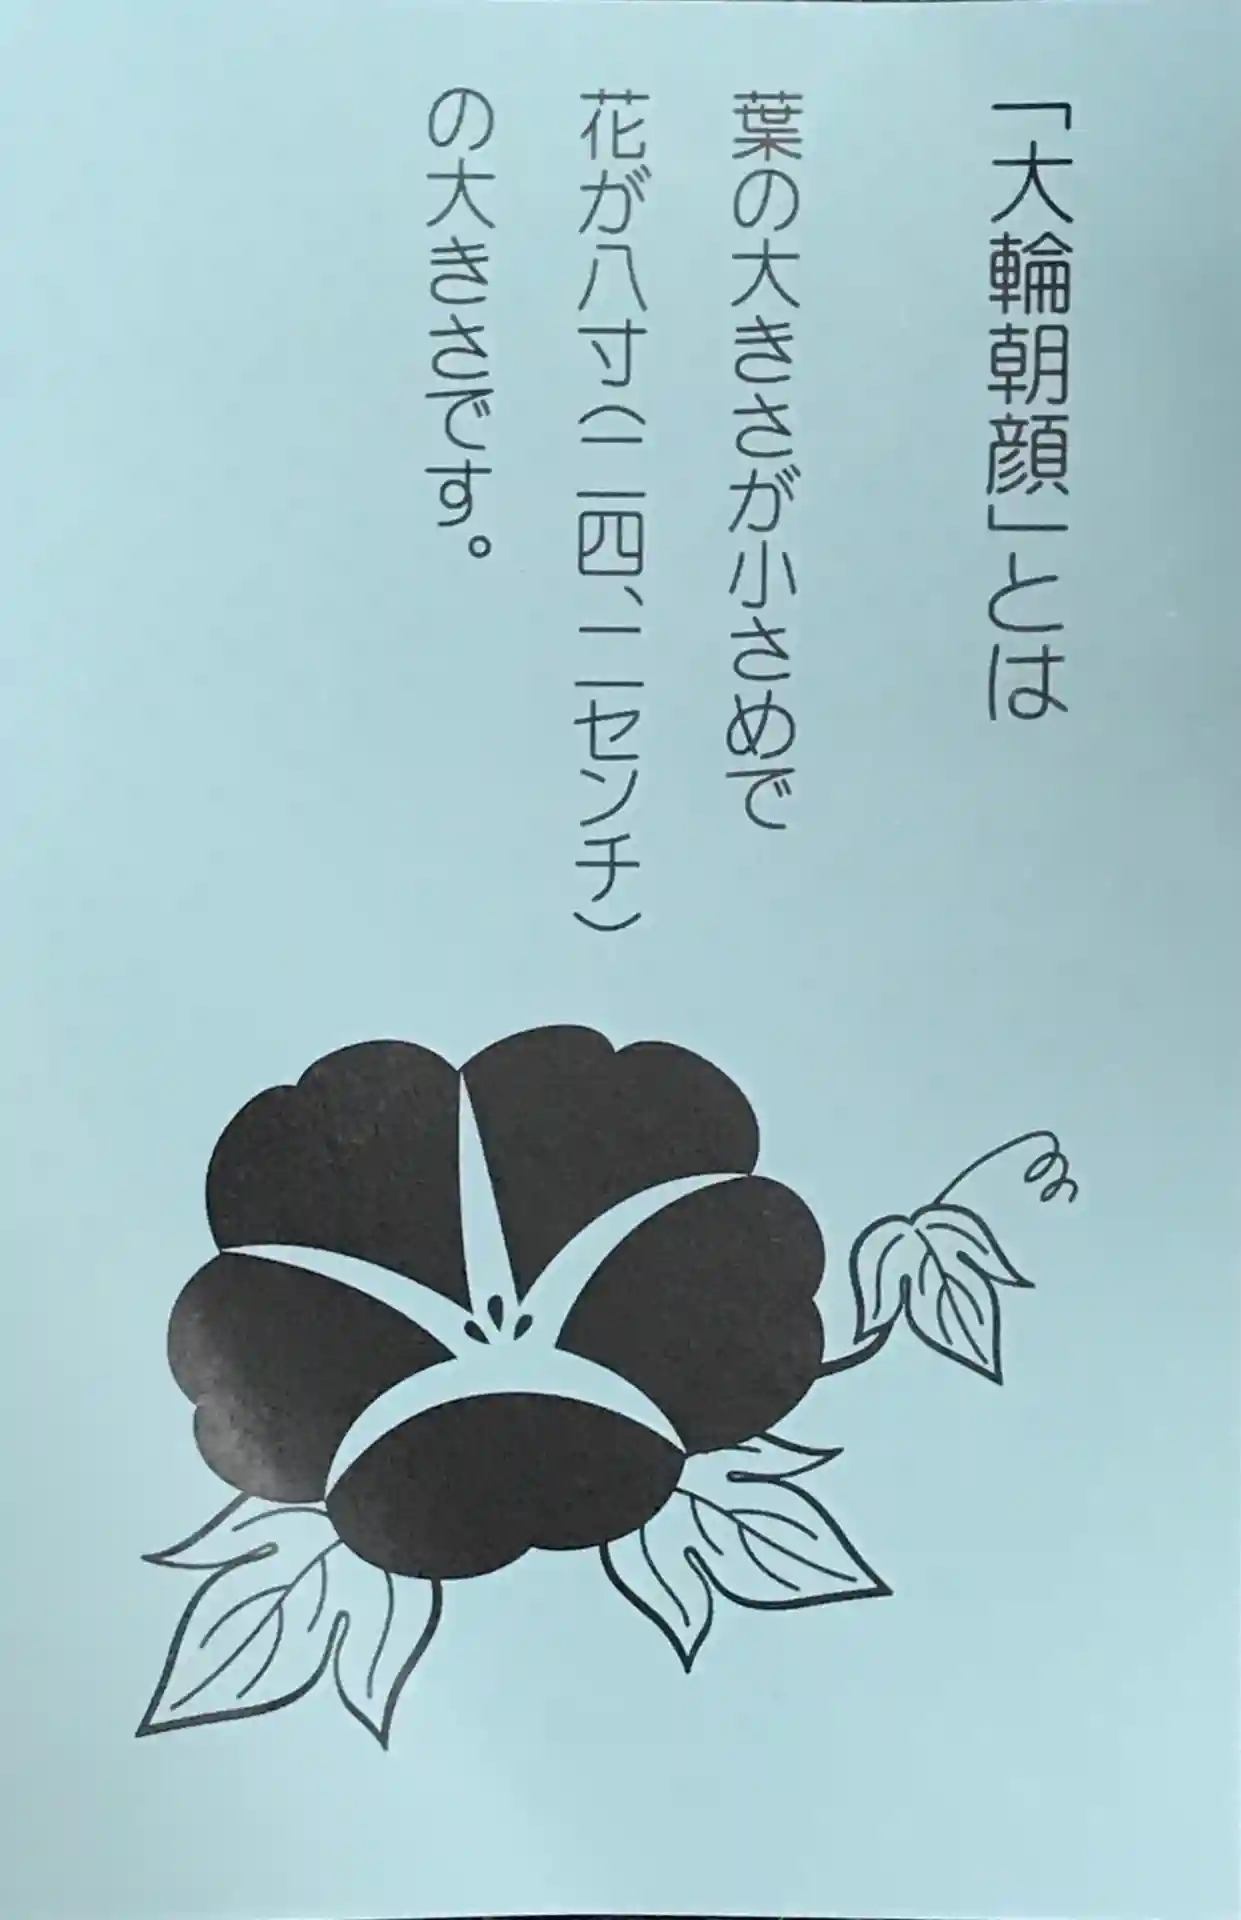 「大輪朝顔」とは
葉の大きさが小さめで
花が八寸(二四、二センチ)
の大きさです。